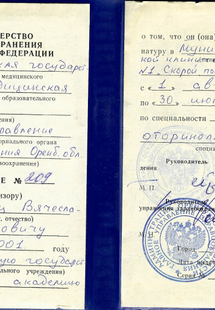 ЕРСТВО
ОХРАНЕНИЯ
ФЕДЕРАЦИИ
кая государ
медицинского
дицинская
образовательного
равление
ального органа
ения Оренб. обл.
воохранения)
Е № 209
изору)
ц Вячесла-
отчество)
овичу
001 году
ую государ
дательного учреждения)
академию
о том, что он (она)
натуру в Муни
кой клини
№1, Скорой по
с «1» ав
по «30» июн
по специальности
оторинол
Руководитель
дения
М. П.
Руководитель
управления
Город
Дата выдачи